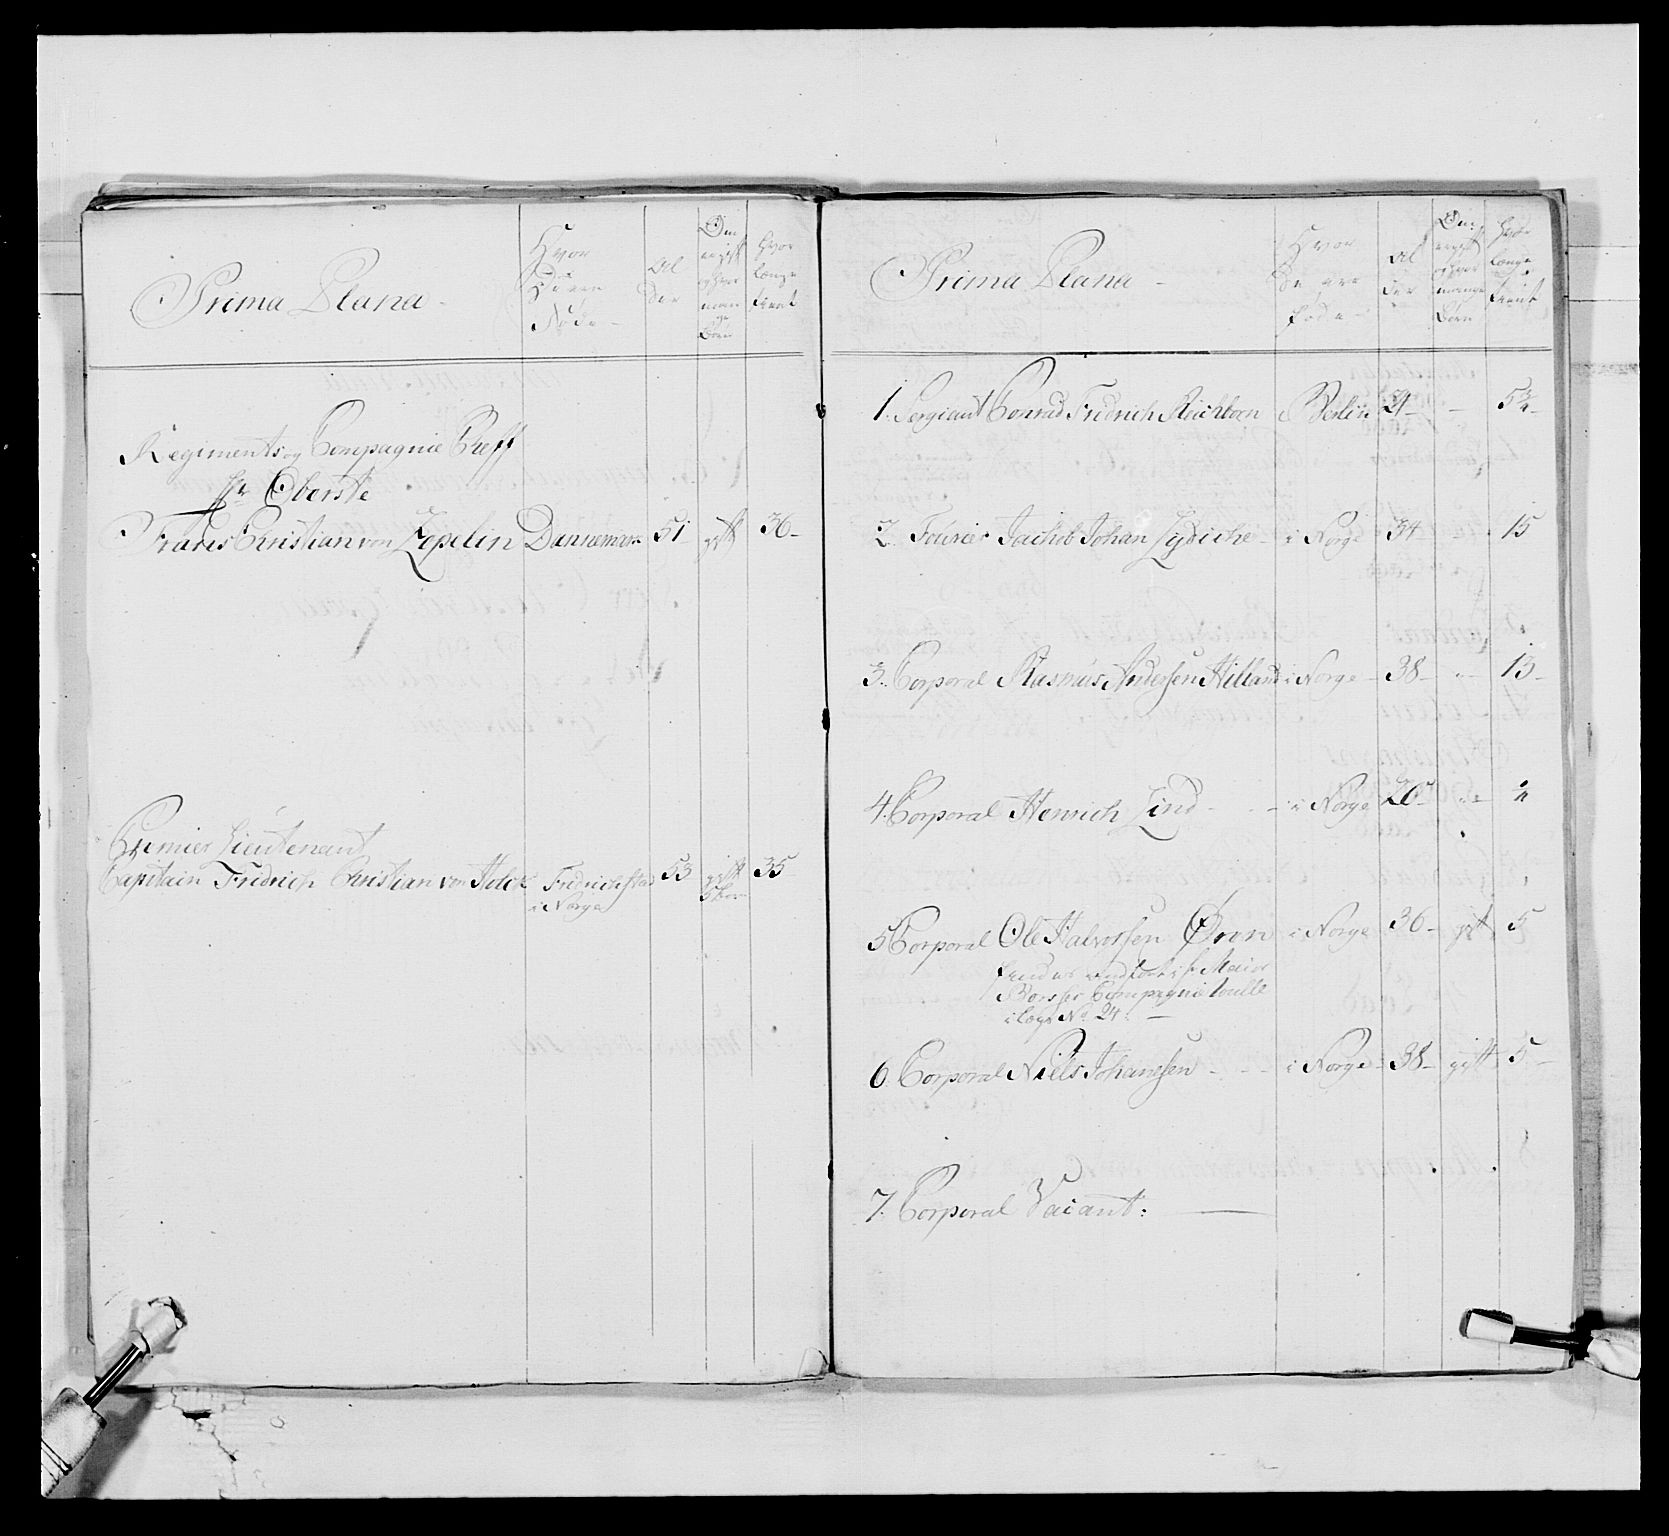 Prima Plana -
Hvor
Føde -
Al
der
Om
gift
og hvor
man
ge
Børn
Hvor
længe
tient
Regiments og Compagnie Cheff
Hr Oberste
Frans Christian von Zepelin Dannemark 51 gift 36 -
Premier Lieutenant
Capitain Fridrich Christian von Holck Fridrichstad 53 gift 35
i Norge 5 Børn
Prima Plana -
Hvor
De ere
føde -
Al
der
Om
gift
og hvor
mange
Børn
Hvor
længe
tient
1. Sergiant Conrad Fridrich Reichborn i Berlin 21 - - 5¾ -
2. Fourier Jachob Johan Lydiche - i Norge 34 - 15
3. Corporal Rasmus Andersen Hilland i Norge - 38 - - 13 -
4. Corporal Henrich Lind - - - i Norge 26 -
5 Corporal Ole Halvorsen Ørvn i Norge 36 - gift 5
Compagnie Rulle
i læg No 24: -
6. Corporal Niels Johansen - - - i Norge - 38 - gift - 5 -
7. Corporal Vacant: -